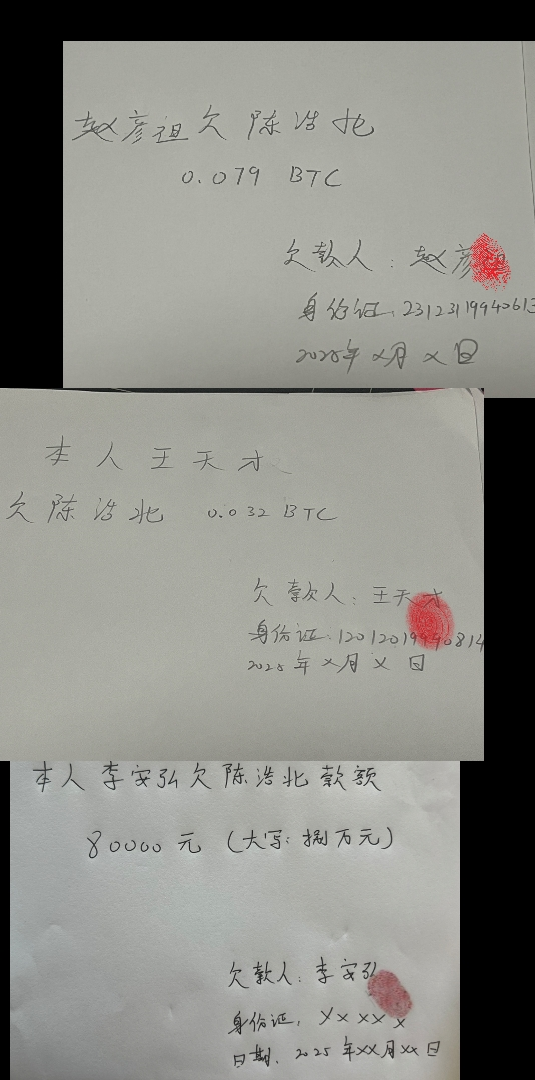 赵彦祖欠陈浩北
0.079 BTC
欠款人:赵彦祖
身份证:23123119940613
2025年X月X日
本人王天才
欠陈浩北 0.032 BTC
欠款人:王天才
身份证:12012019940814
2025年X月X日
本人李安弘欠陈浩北款额
80000元(大写:捌万元)
欠款人:李安弘
身份证:XXXXX
日期:2025年XX月XX日